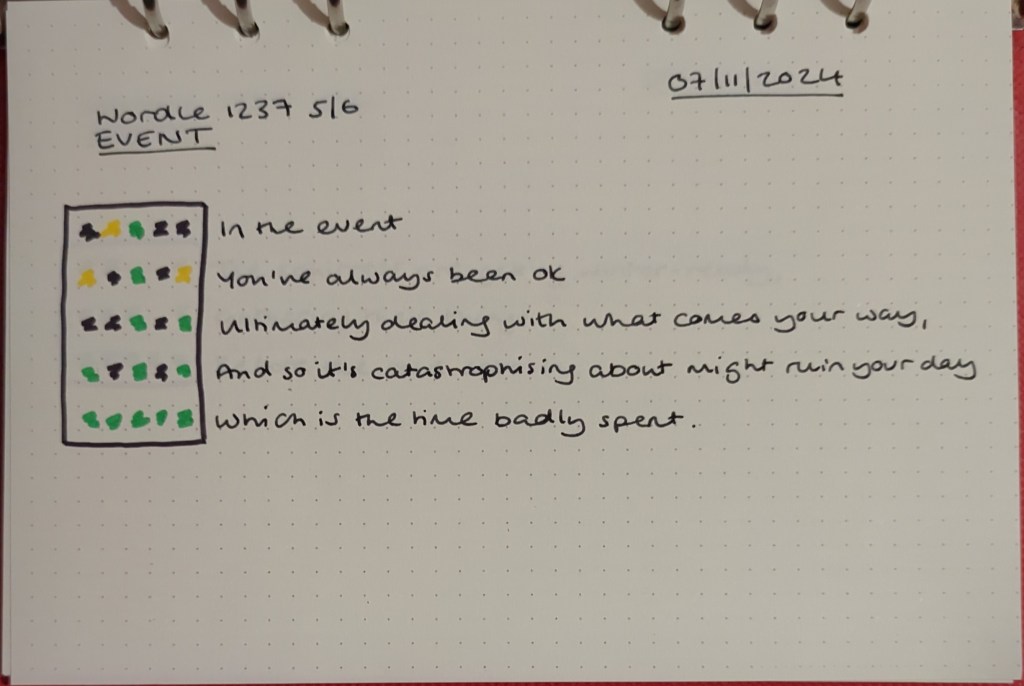 07/11/2024
Wordle 1237 5/6
EVENT
In the event
You've always been ok
Ultimately dealing with what comes your way,
And so it's catastrophising about might ruin your day
Which is the time badly spent.